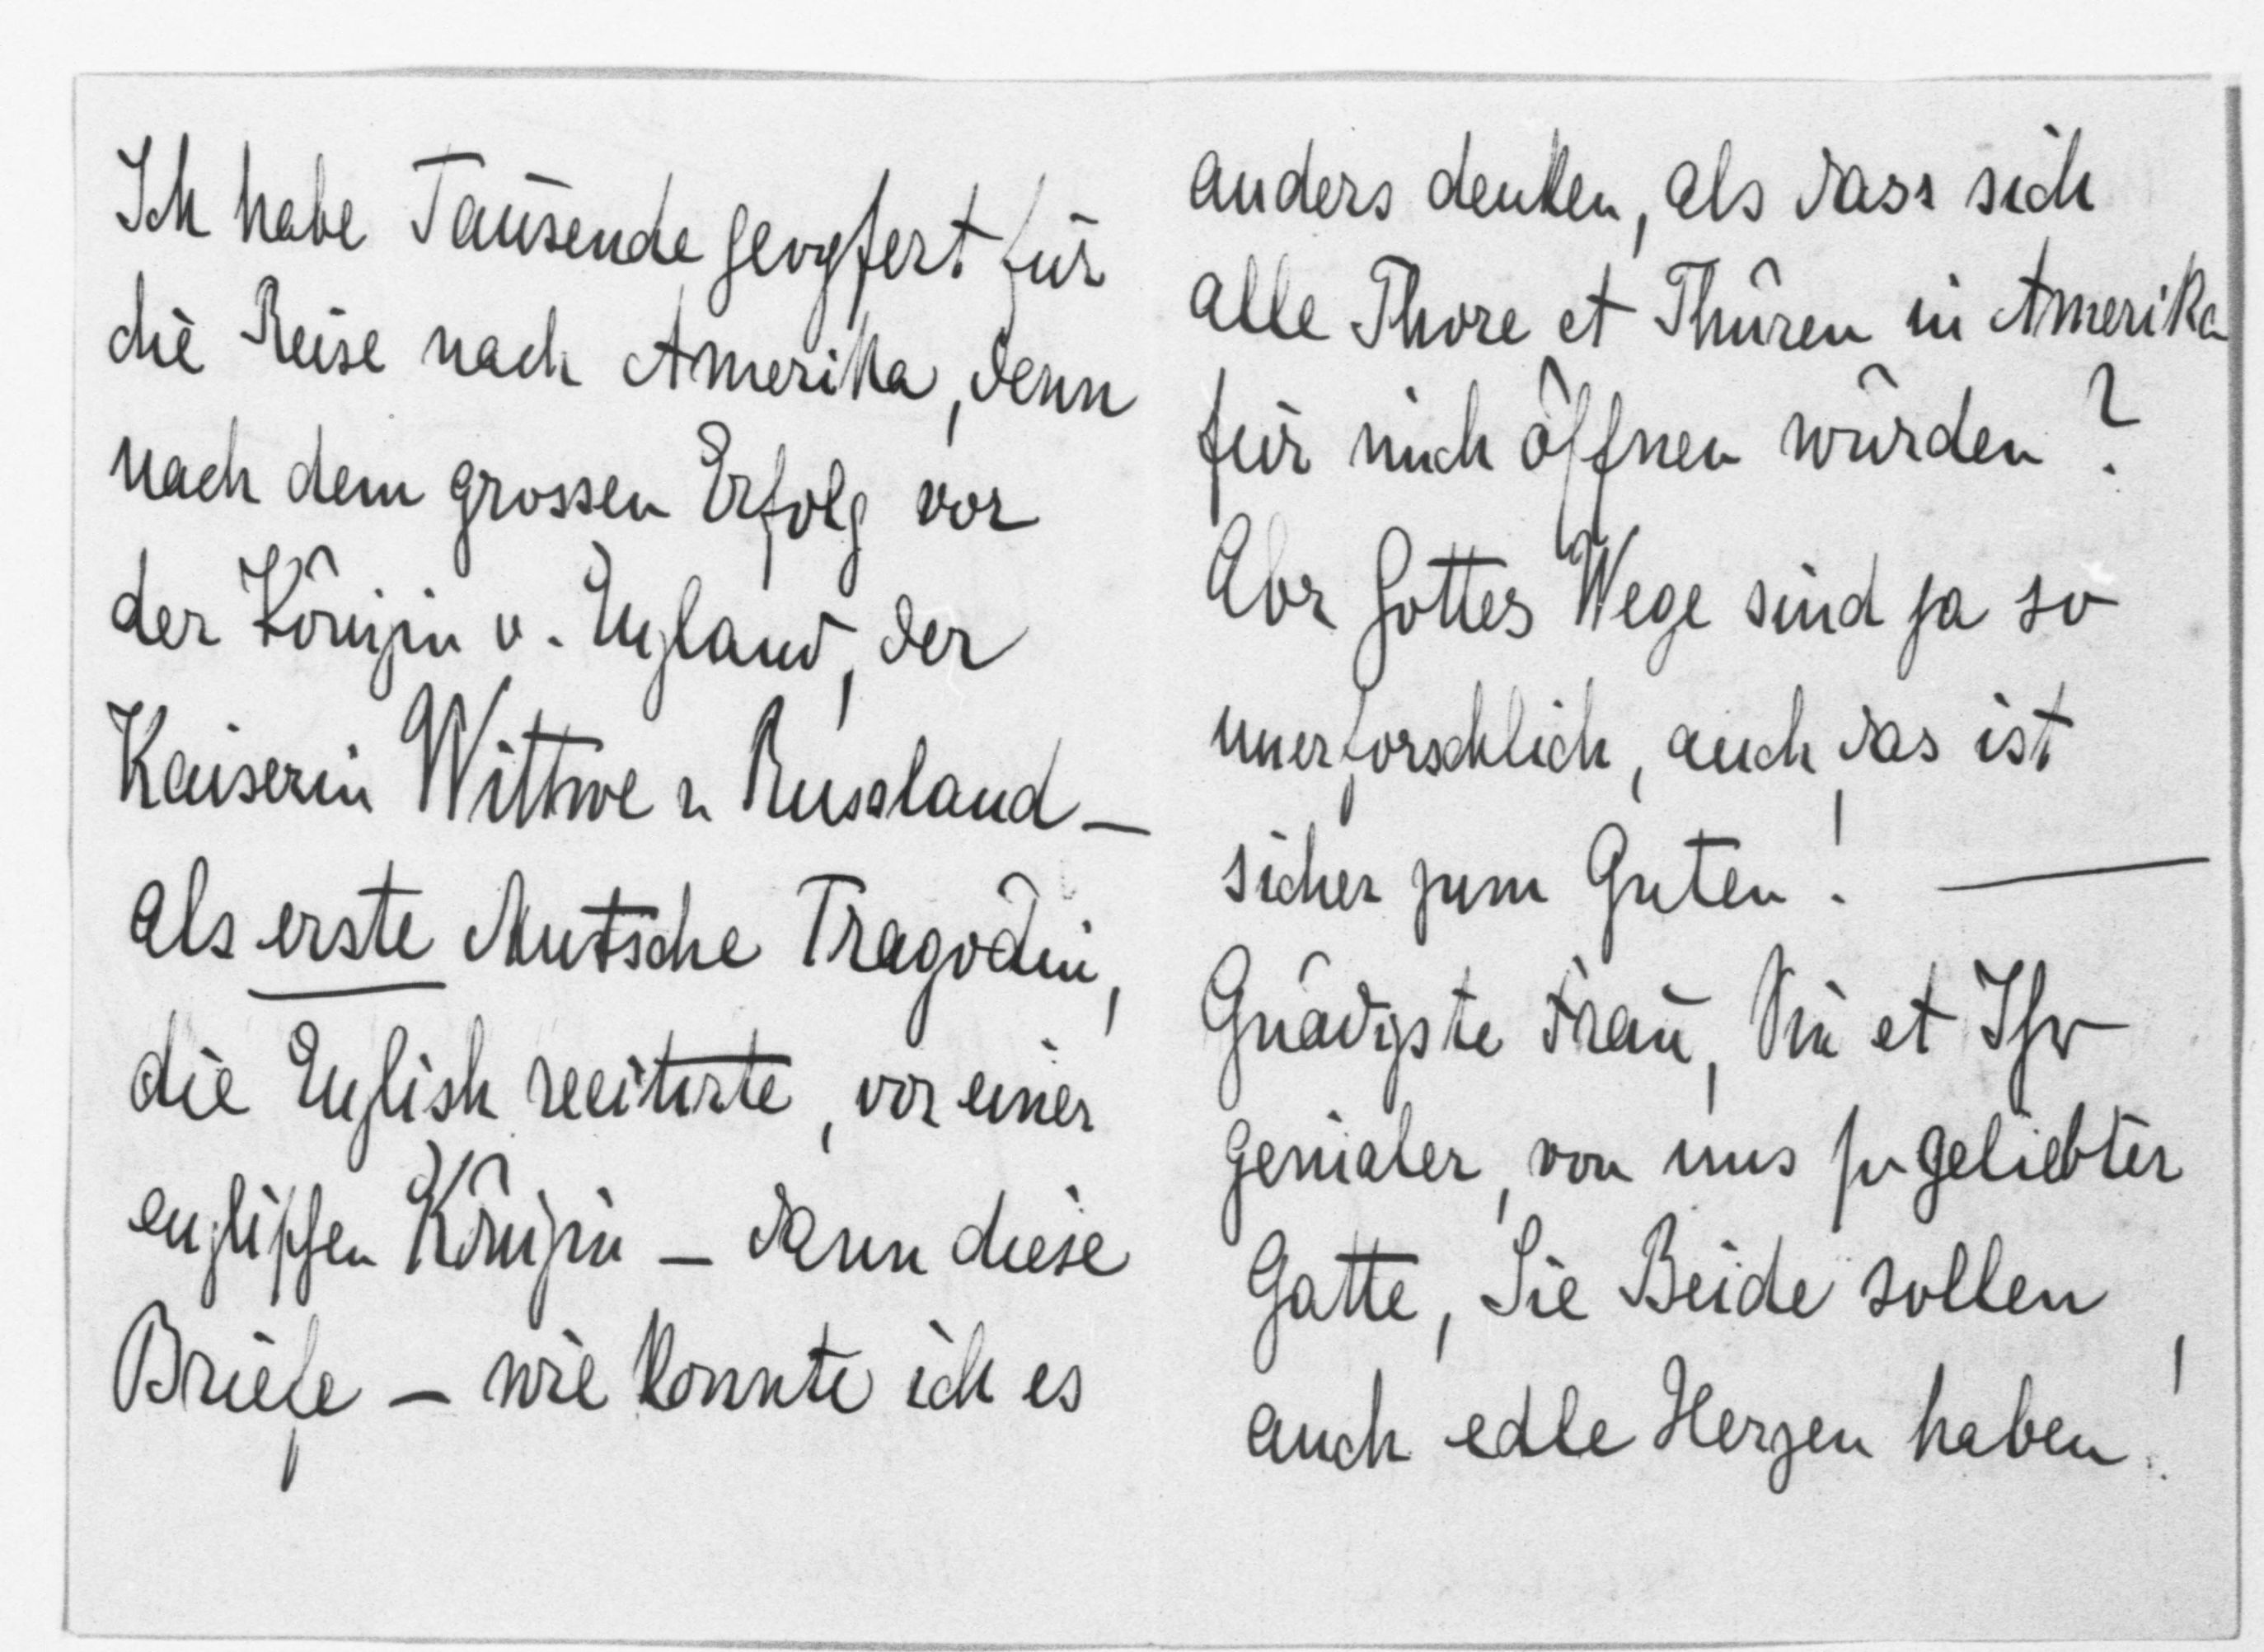 Ich habe Tausende geopfert für
die Reise nach Amerika, denn
nach dem grossen Erfolg vor
der Königin v. England, der
Kaiserin Wittwe v. Russland –
als erste deutsche Tragödin,
die English recitirte, vor einer
englischen Königin – dann diese
Briefe – wie konnte ich es
anders denken, als dass sich
alle Thore et Thüren in Amerika
für mich öffnen würden?
Abr Gottes Wege sind ja so
unerforschlich, auch das ist
sicher zum Guten! —
Gnädigste Frau, Sie et Ihr
genialer, von uns so geliebter
Gatte, Sie Beide sollen
auch edle Herzen haben!